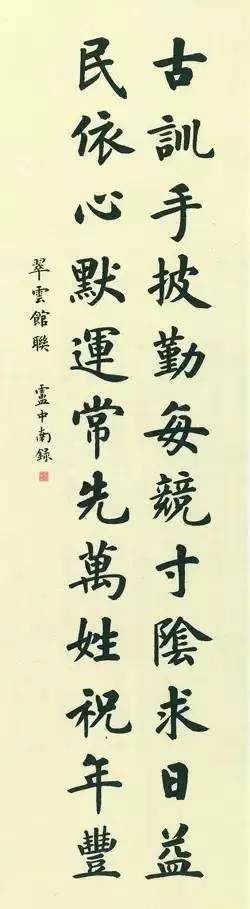 古訓手披勤每競寸陰求日益
民依心默運常先萬姓祝年豐
翠雲館聯 盧中南録